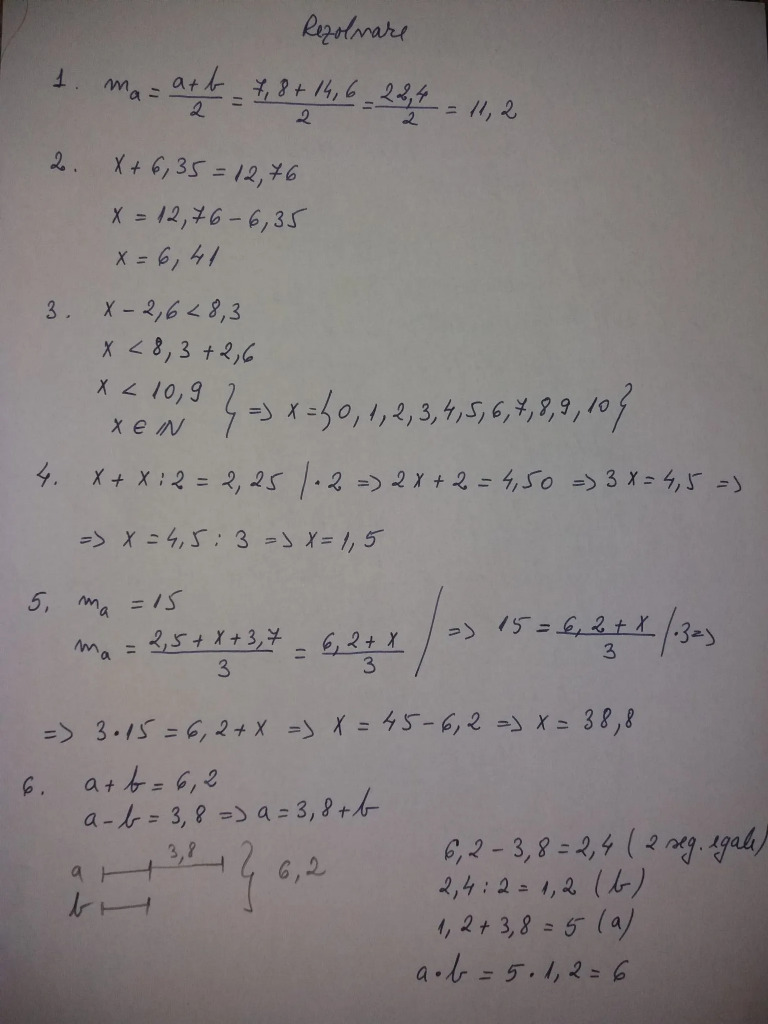 Rezolvare
1. mₐ = (a+b)/2 = (7,8+14,6)/2 = 22,4/2 = 11,2
2. x + 6,35 = 12,76
x = 12,76 - 6,35
x = 6,41
3. x - 2,6 < 8,3
x < 8,3 + 2,6
x < 10,9
x ∈ ℕ } => x = {0,1,2,3,4,5,6,7,8,9,10}
4. x + x : 2 = 2,25 /·2 => 2x + 2 = 4,50 => 3x = 4,5 =>
=> x = 4,5 : 3 => x = 1,5
5. mₐ = 15
mₐ = (2,5+x+3,7)/3 = (6,2+x)/3 / => 15 = (6,2+x)/3 /·3 =>
=> 3·15 = 6,2+x => x = 45-6,2 => x = 38,8
6. a + b = 6,2
a - b = 3,8 => a = 3,8 + b
a 3,8 } 6,2
b
6,2 - 3,8 = 2,4 (2 seg. egale)
2,4 : 2 = 1,2 (b)
1,2 + 3,8 = 5 (a)
a·b = 5·1,2 = 6